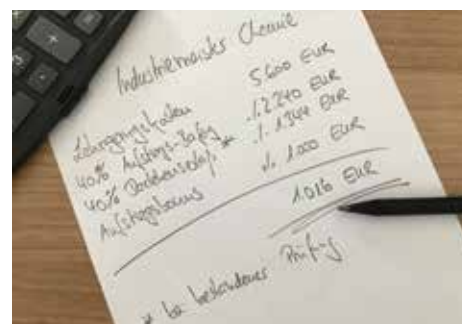 Industriemeister Chemie
Lehrgangskosten 5.600 EUR
40% Aufstiegs-Bafög ./. 2.240 EUR
40% Darlehenserlass* ./. 1.344 EUR
Aufstiegsbonus ./. 1.000 EUR
1.016 EUR
* bei bestandener Prüfung